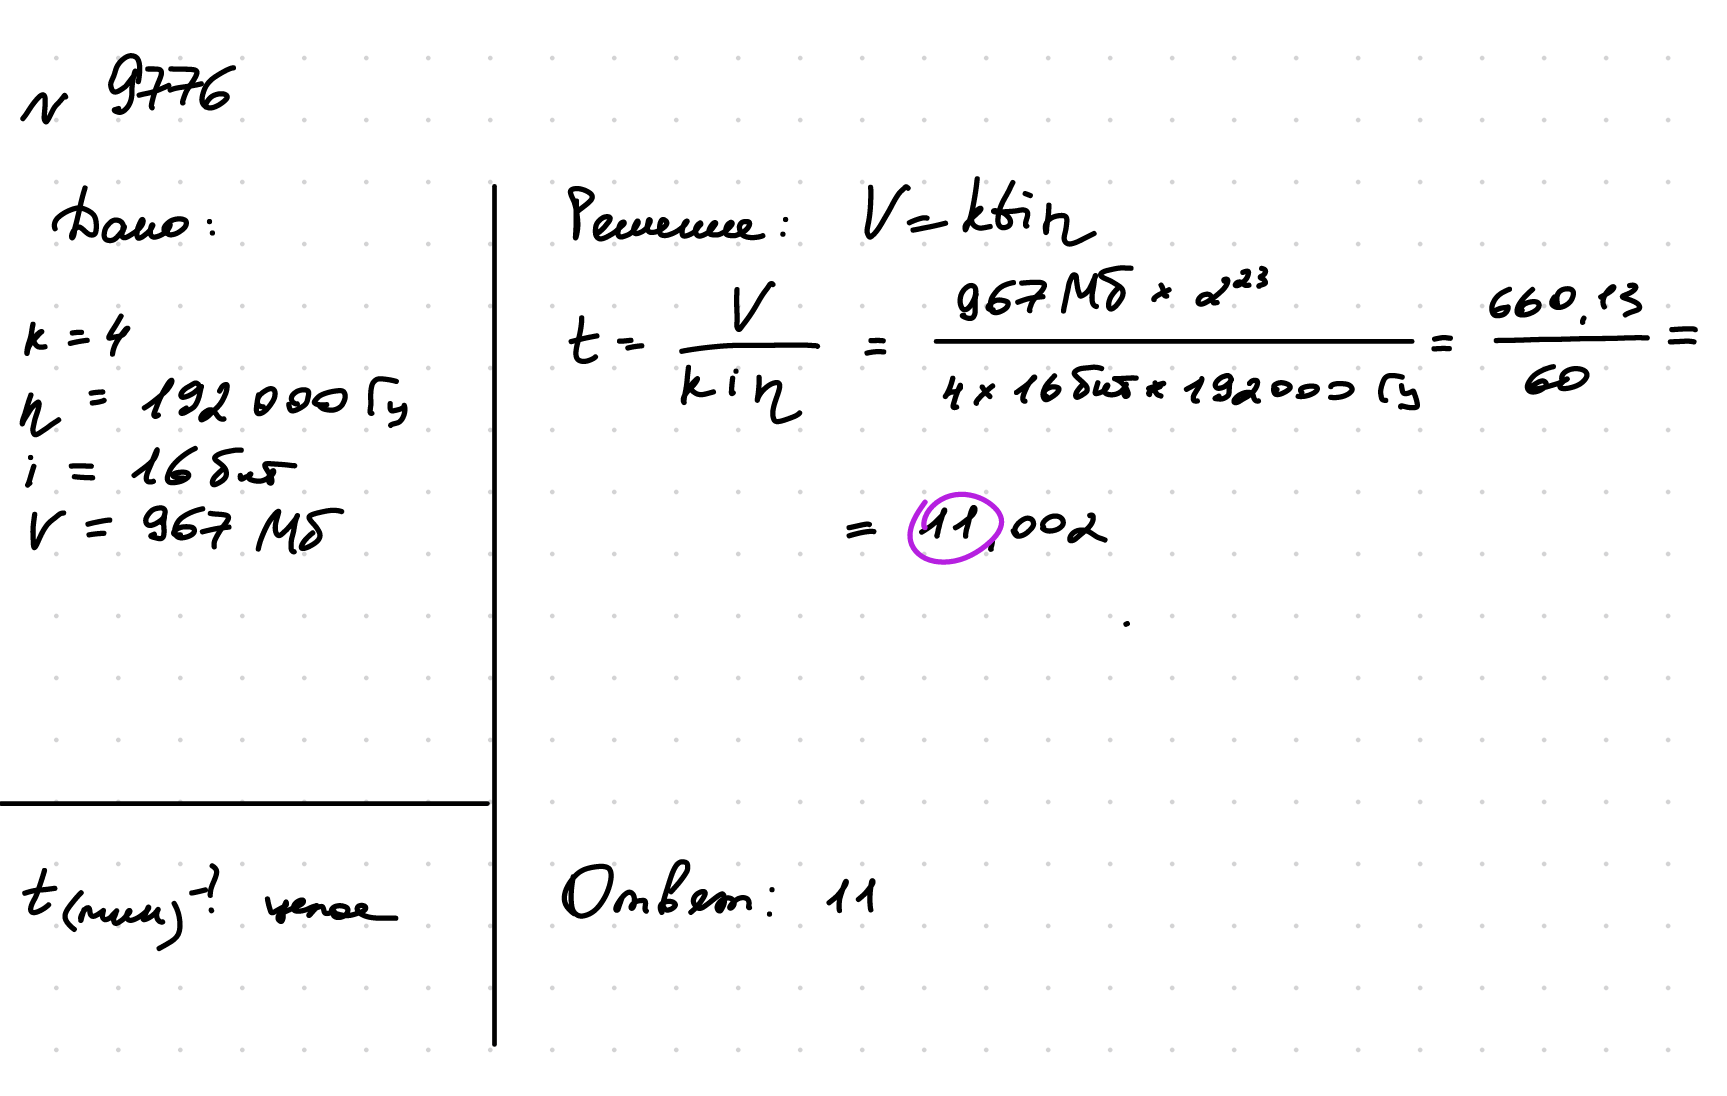 N 9776
Дано:
k = 4
η = 192 000 Гц
i = 16 бит
V = 967 Мб
t(мин) -? целое
Решение: V = ktiη
t = V / kiη = 967 Мб × 2^23 / 4 × 16 бит × 192000 Гц = 660,13 / 60 =
= 11,002
Ответ: 11